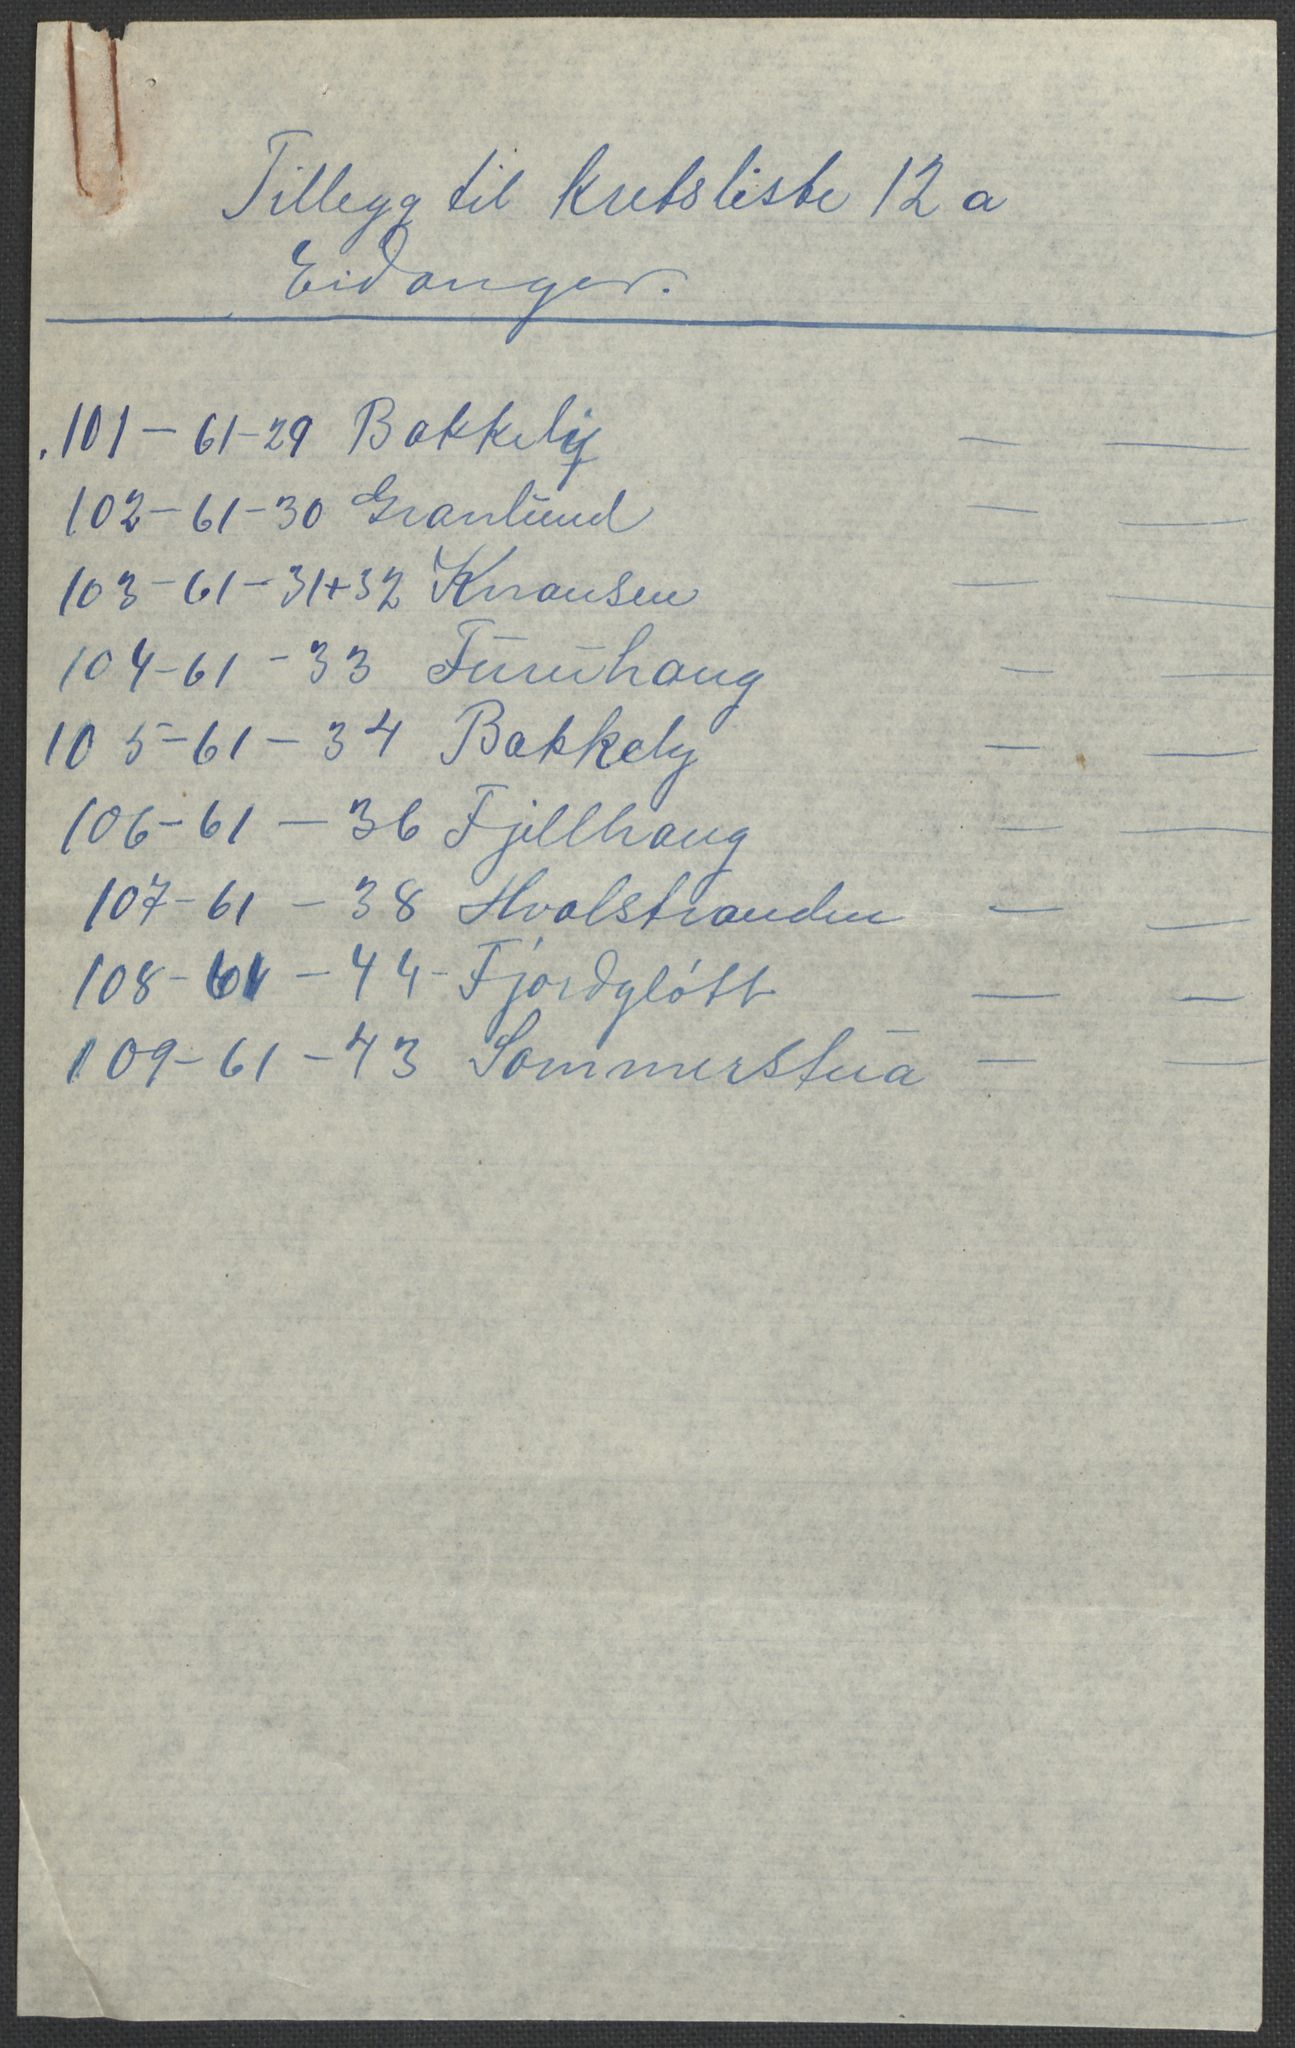 Tillegg til kretsliste 12 a
Eidanger.
101 - 61 - 29 Bakkely — —
102 - 61 - 30 Granlund — —
103 - 61 - 31+32 Knausen — —
104 - 61 - 33 Furuhaug — —
105 - 61 - 34 Bakkely — —
106 - 61 - 36 Fjellhaug — —
107 - 61 - 38 Hvalstranden — —
108 - 61 - 44 - Fjordgløtt — —
109 - 61 - 43 Sommerstua — —